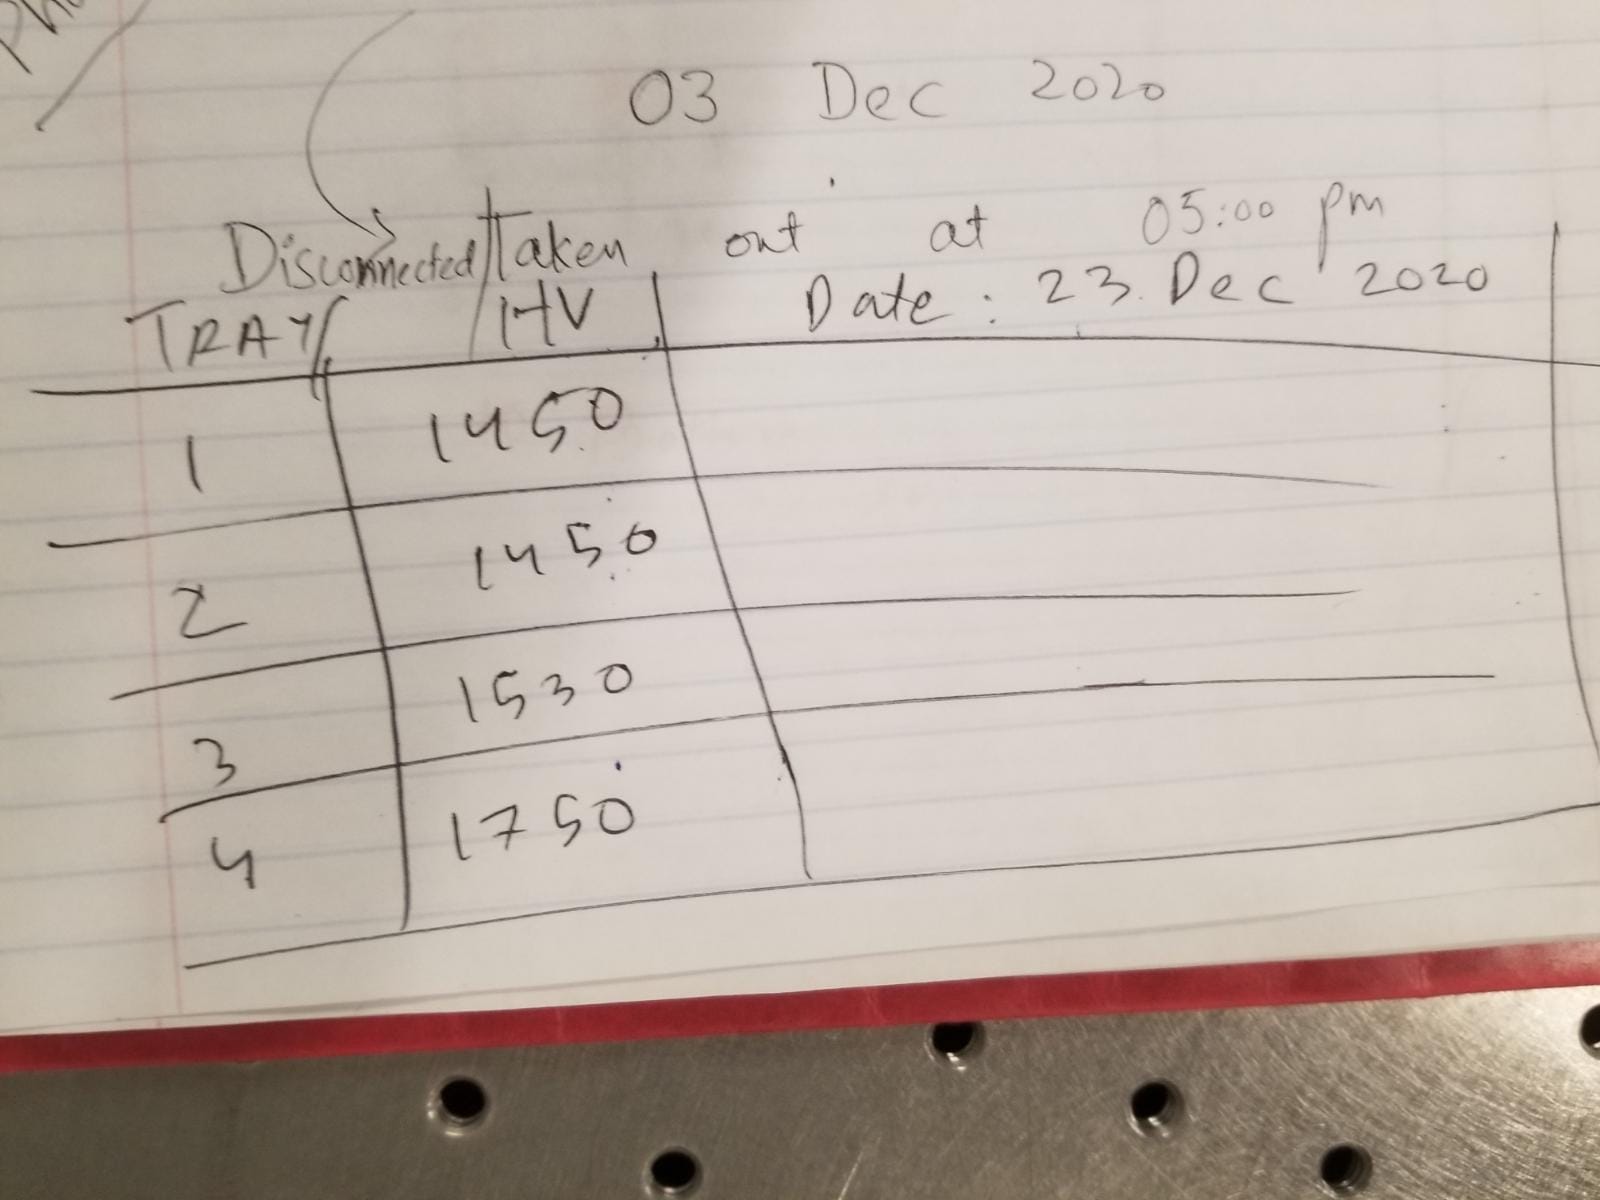 03 Dec 2020
Disconnected/Taken out at 05:00 pm
TRAY HV Date: 23 Dec 2020
1 1450
2 1450
3 1530
4 1750